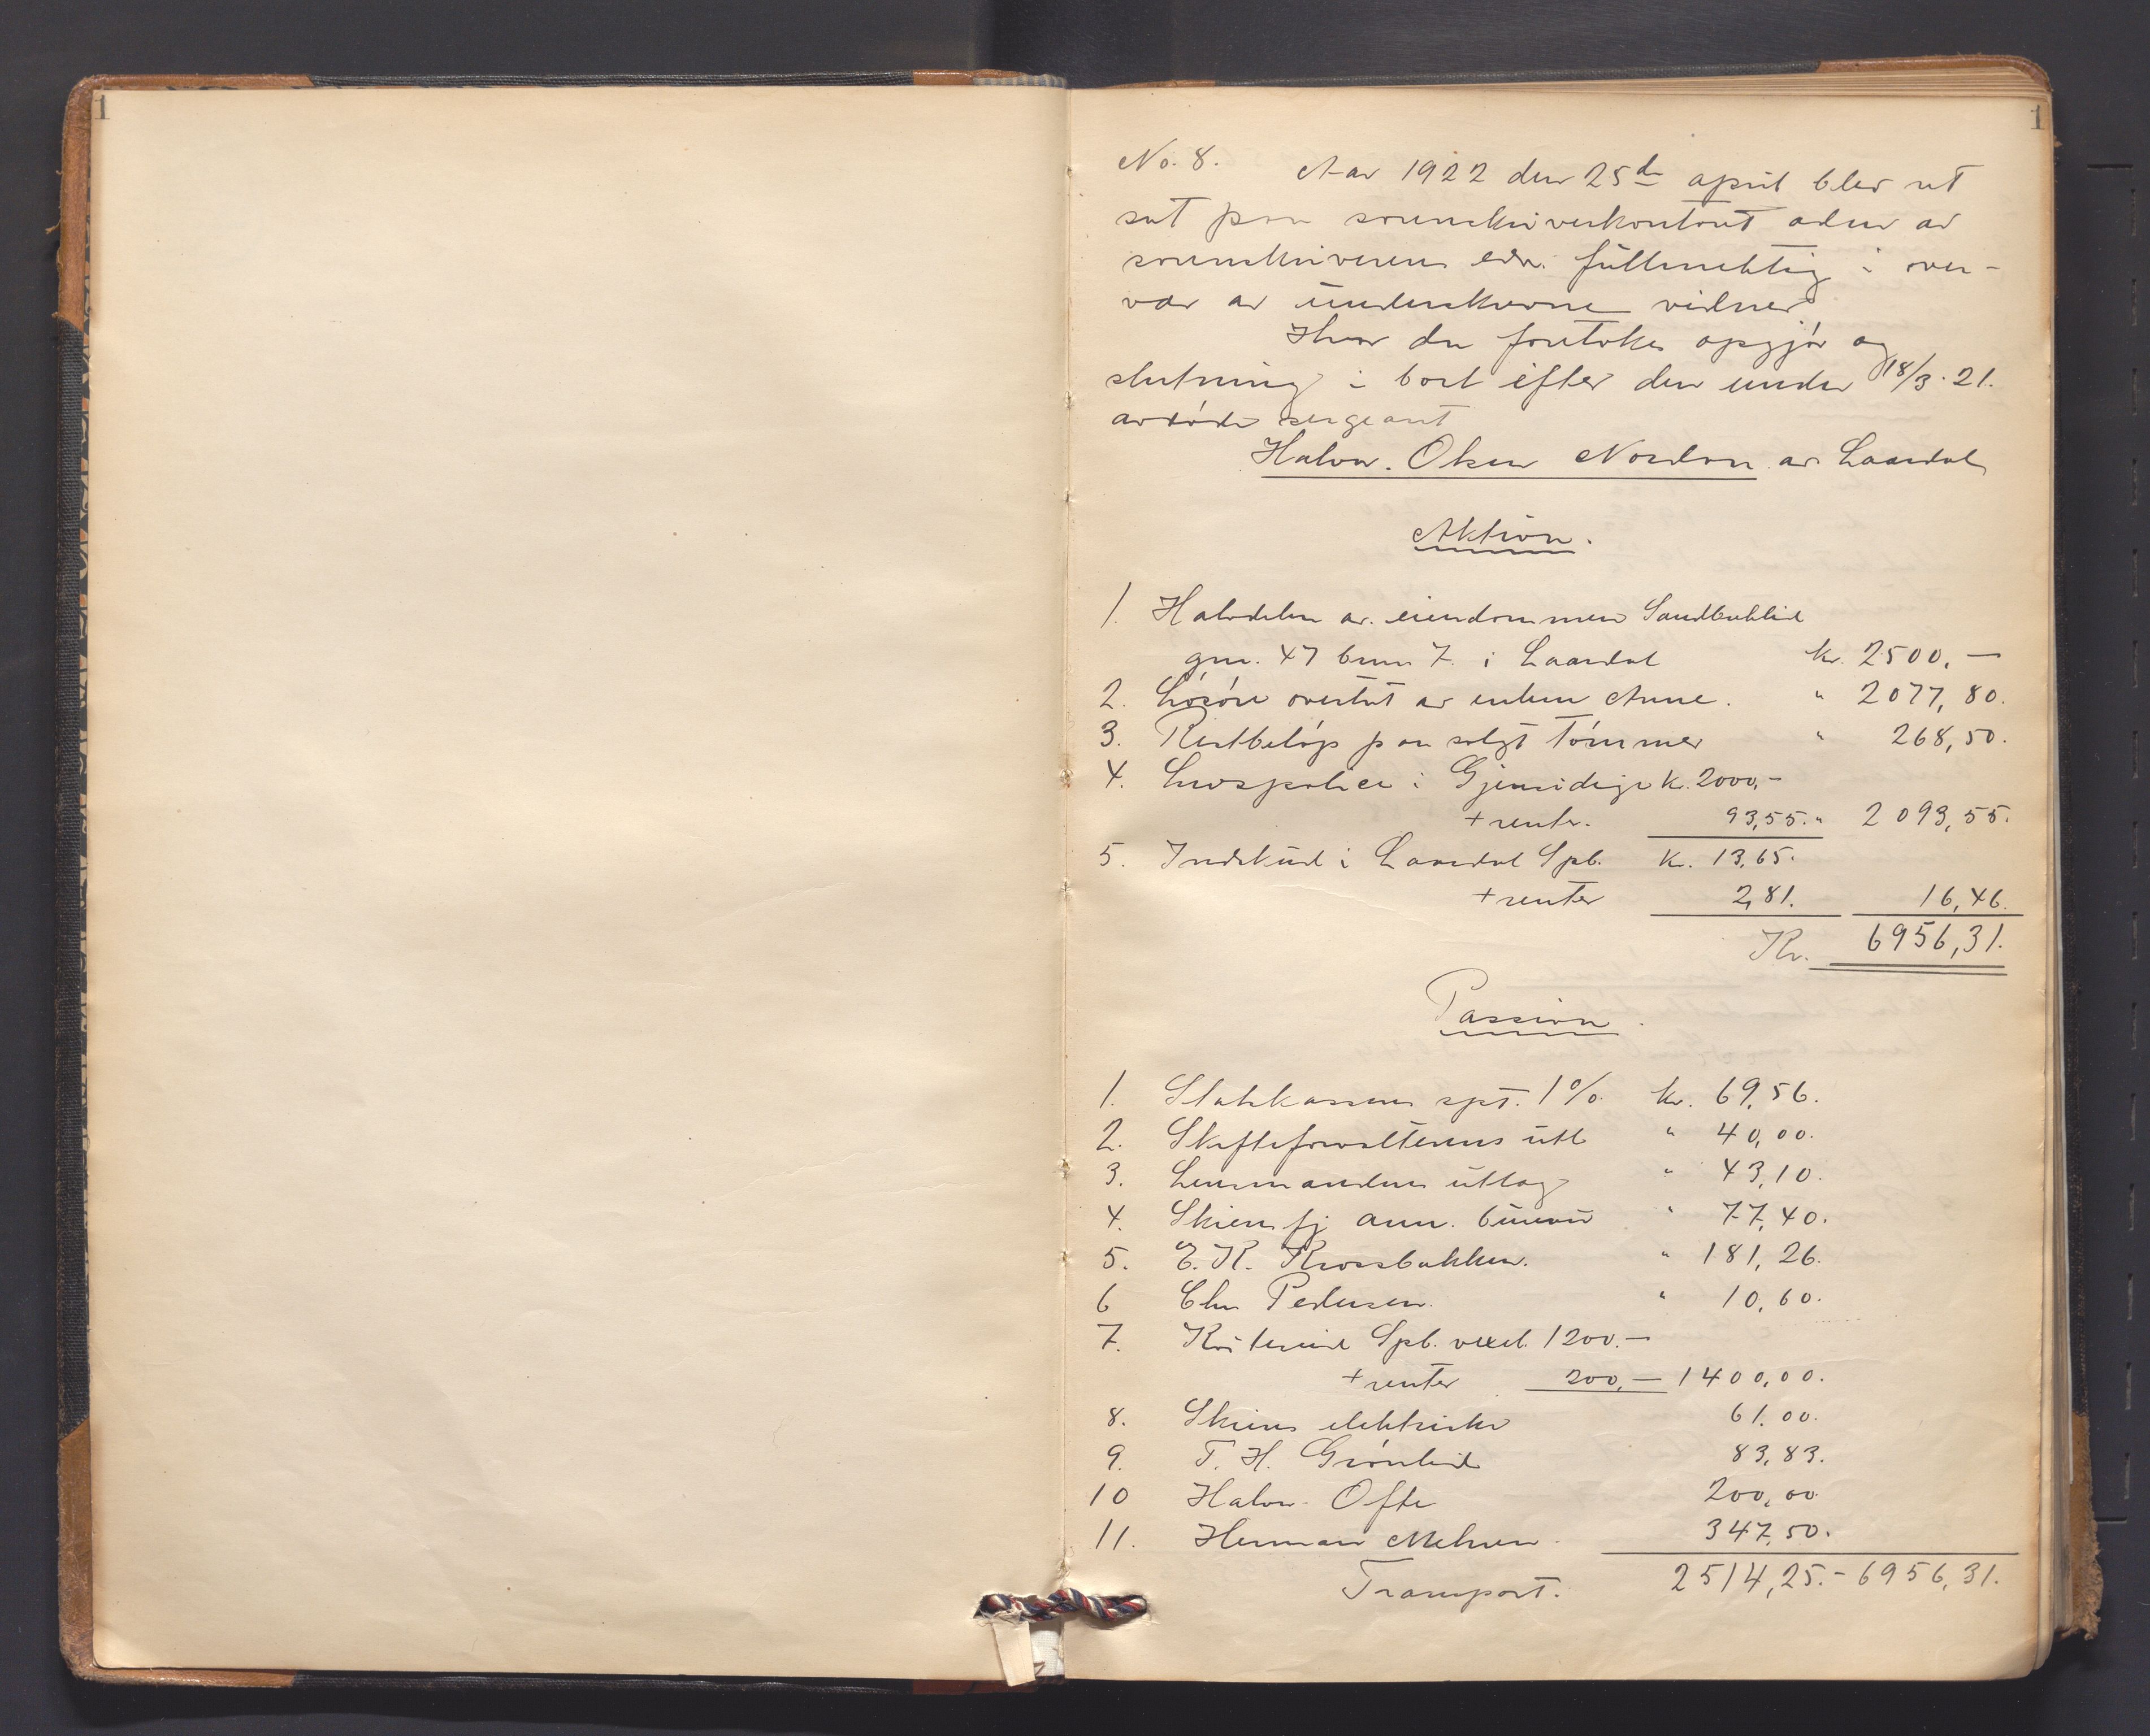 1
1
No. 8. Aar 1922 den 25de april blev ret
sat paa sorenskriverkontoret aden av
sorenskriveren edsv. fullmektig i over-
vær av underskrevne vidner
Hvor da foretokes opgjør og
slutning i boet efter den under 18/3. 21.
avdøde sergeant
Halvor Olsen av Laardal
Aktiva.
1. Halvdelen av eiendommen Sandbæklid
gnr. 47 bnr 7. i Laardal kr. 2500.—
2. Løsøre overtat av enken Anne. " 2077,80.
3. Restbeløp paa solgt tømmer " 268,50.
4. Livspolice i Gjensidige k. 2000,-
+ renter. 93,55. " 2093,55.
5. Indskud i Laardal Spb. k. 13,65.
+ renter 2,81. 16,46.
Kr. 6956,31.
Passiva.
1. Statskassens spt. 1% kr. 69,56.
2. Skifteforvalterens utl " 40,00.
3. Lensmandens utlæg " 43,10.
4. Skiensfj ann. bureau " 77,40.
5. E. K. Krossbakken. " 181,26.
6 Chr Pedersen. " 10,60.
7. Kviteseid Spb. vexel. 1200.—
+ renter 200,— 1400,00.
8. Skiens elektriske 61.00.
9. T. H. Grønlid 83,83.
10 Halvor Ofte 200,00
11. Herman 347,50.
Transport. 2514,25.- 6956,31.